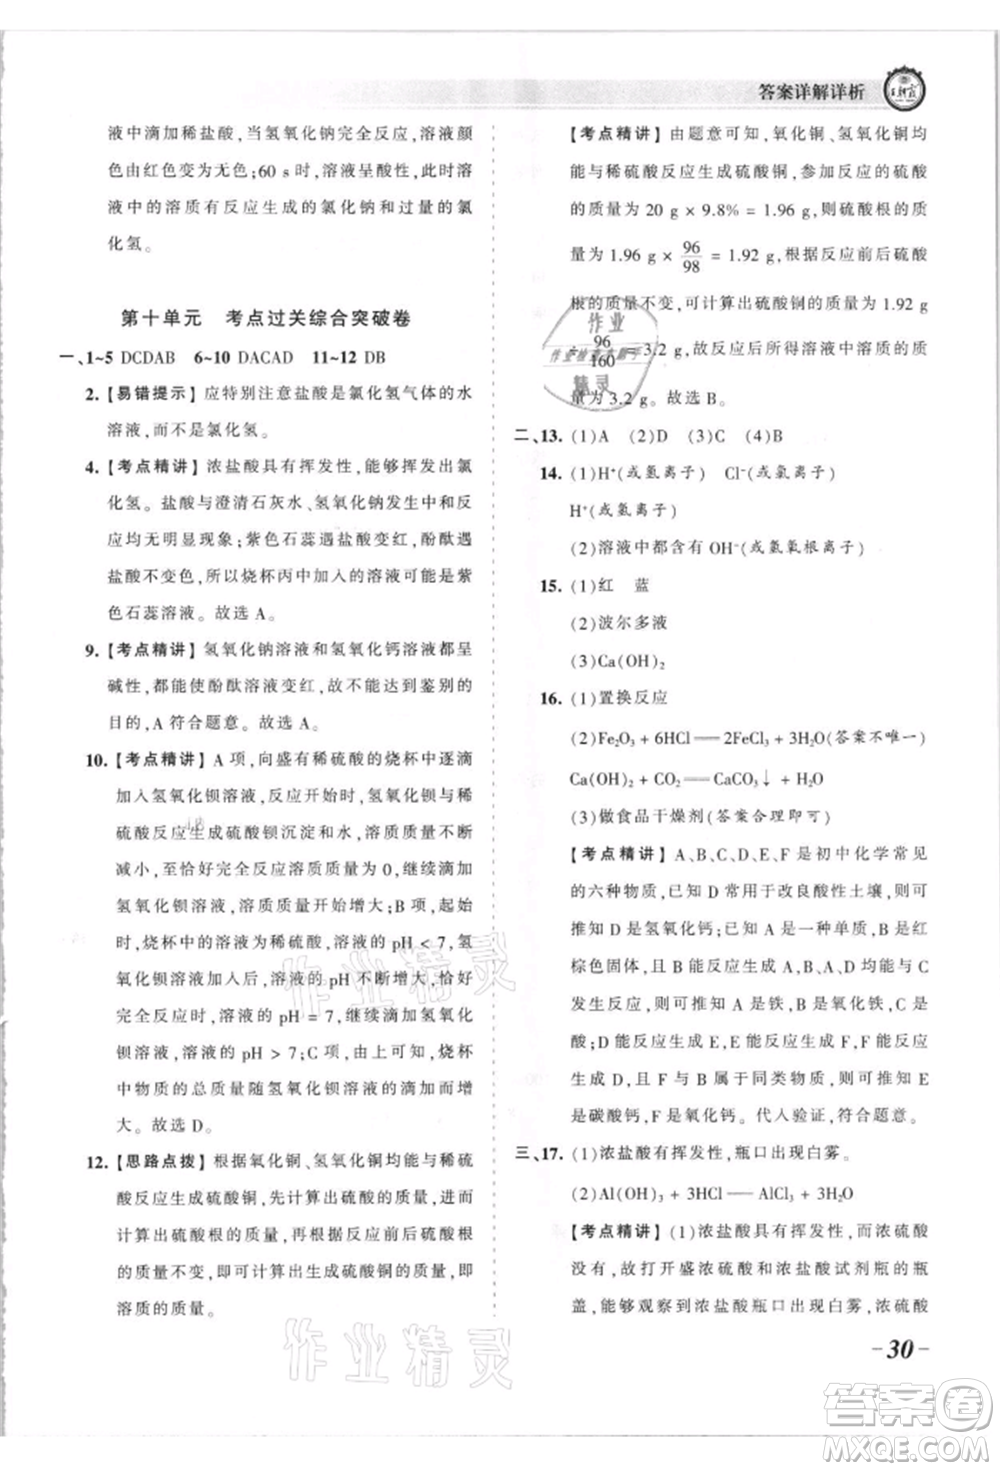 答案详解详析
王朝霞
液中滴加稀盐酸,当氢氧化钠完全反应,溶液颜
色由红色变为无色;60 s时,溶液呈酸性,此时溶
液中的溶质有反应生成的氯化钠和过量的氯
化氢。
第十单元 考点过关综合突破卷
一、1~5 DCDAB 6~10 DACAD 11~12 DB
2.【易错提示】应特别注意盐酸是氯化氢气体的水
溶液,而不是氯化氢。
4.【考点精讲】浓盐酸具有挥发性,能够挥发出氯
化氢。盐酸与澄清石灰水、氢氧化钠发生中和反
应均无明显现象;紫色石蕊遇盐酸变红,酚酞遇
盐酸不变色,所以烧杯丙中加入的溶液可能是紫
色石蕊溶液。故选A。
9.【考点精讲】氢氧化钠溶液和氢氧化钙溶液都呈
碱性,都能使酚酞溶液变红,不能达到鉴别的
目的,A符合题意。故选A。
10.【考点精讲】A项,向盛有稀硫酸的烧杯中逐滴
加入氢氧化钡溶液,反应开始时,氢氧化钡与稀
硫酸反应生成硫酸钡沉淀和水,溶质质量不断减
小,至恰好完全反应溶质质量为0,继续滴加
氢氧化钡溶液,溶质质量开始增大;B项,起始
时,烧杯中的溶液为稀硫酸,溶液的pH<7,氢
氧化钡溶液加入后,溶液的pH不断增大,恰好
完全反应时,溶液的pH=7,继续滴加氢氧化
钡溶液,溶液的pH>7;C项,由上可知,烧杯
中物质的总质量随氢氧化钡溶液的滴加一直增
大。故选D。
12.【思路点拨】根据氧化铜、氢氧化铜均能与稀硫
酸反应生成硫酸铜,先计算出硫酸的质量,进而
计算出硫酸根的质量,再根据反应前后硫酸根
的质量不变,即可计算出生成硫酸铜的质量即
溶质的质量。
【考点精讲】由题意可知,氧化铜、氢氧化铜均
能与稀硫酸反应生成硫酸铜,参加反应的硫酸
的质量为20 g×9.8%=1.96 g,则硫酸根的质
量为1.96 g×96/98=1.92 g,根据反应前后硫酸
根的质量不变,可计算出硫酸铜的质量为1.92 g
÷96/160=3.2 g,故反应后所得溶液中溶质的质
量为3.2 g。故选B。
二、13.(1)A (2)D (3)C (4)B
14.(1)H⁺(或氢离子) Cl⁻(或氯离子)
H⁺(或氢离子)
(2)溶液中都含有OH⁻(或氢氧根离子)
15.(1)红 蓝
(2)波尔多液
(3)Ca(OH)₂
16.(1)置换反应
(2)Fe₂O₃+6HCl══2FeCl₃+3H₂O(答案不唯一)
Ca(OH)₂+CO₂══CaCO₃↓+H₂O
(3)做食品干燥剂(答案合理即可)
【考点精讲】A、B、C、D、E、F是初中化学常见
的六种物质,已知D常用于改良酸性土壤,可
推知D为氢氧化钙;已知A是一种单质,B是红
棕色固体,且B能反应生成A,A、B、D都能与C
发生反应,则可推知A是铁,B是氧化铁,C是
盐酸;D能反应生成E,E能反应生成F,F能反应
生成D且F与B属于同类物质,则可推知E
是碳酸钙,F是氧化钙。代入验证,符合题意。
三、17.(1)浓盐酸有挥发性,瓶口出现白雾。
(2)Al(OH)₃+3HCl══AlCl₃+3H₂O
【考点精讲】(1)浓盐酸具有挥发性,而浓硫酸
没有,故打开盛浓硫酸和浓盐酸试剂瓶的瓶
盖,能够观察到浓盐酸瓶口出现白雾,浓硫酸
-30-
作业精灵
作业精灵
作业
作业检查小助手
精灵
答案圈
MXQE.COM